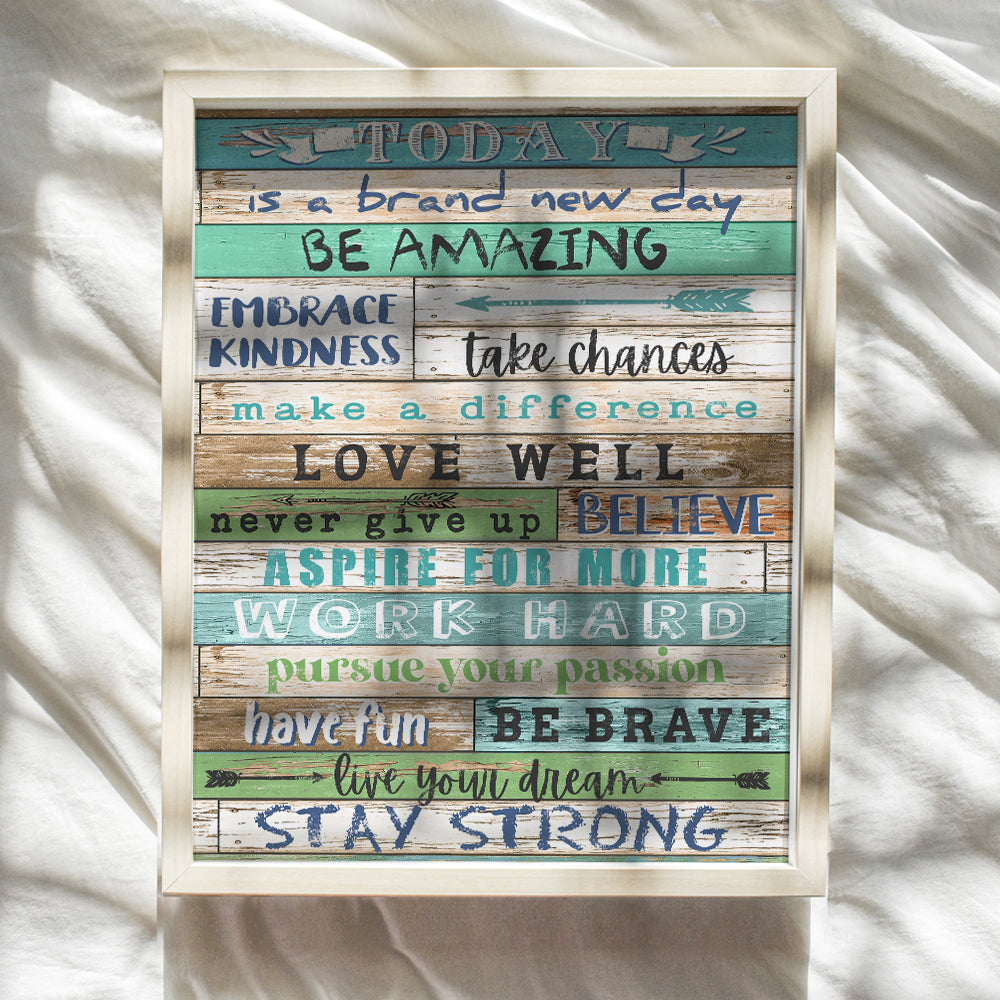 TODAY
is a brand new day
BE AMAZING
EMBRACE
KINDNESS
take chances
make a difference
LOVE WELL
never give up
BELIEVE
ASPIRE FOR MORE
WORK HARD
pursue your passion
have fun
BE BRAVE
live your dream
STAY STRONG